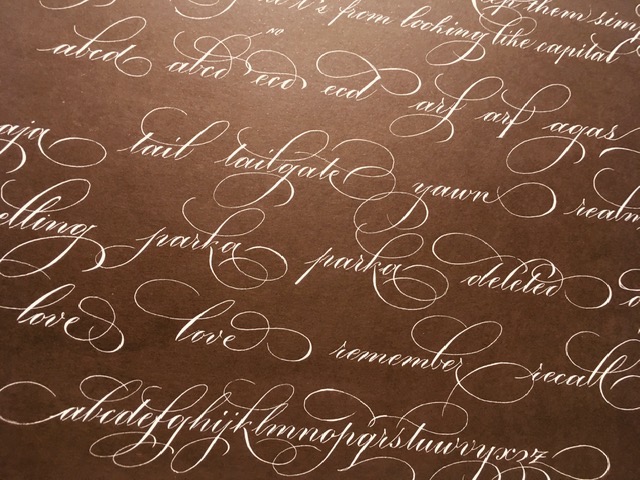 them sim
it's from looking like capital
NO
abcd abcd ecd ecd arf arf agas
aja tail tailgate yawn realm
elling parka parka deleted
love love remember recall
abcdefghijklmnopqrstuwvyxz